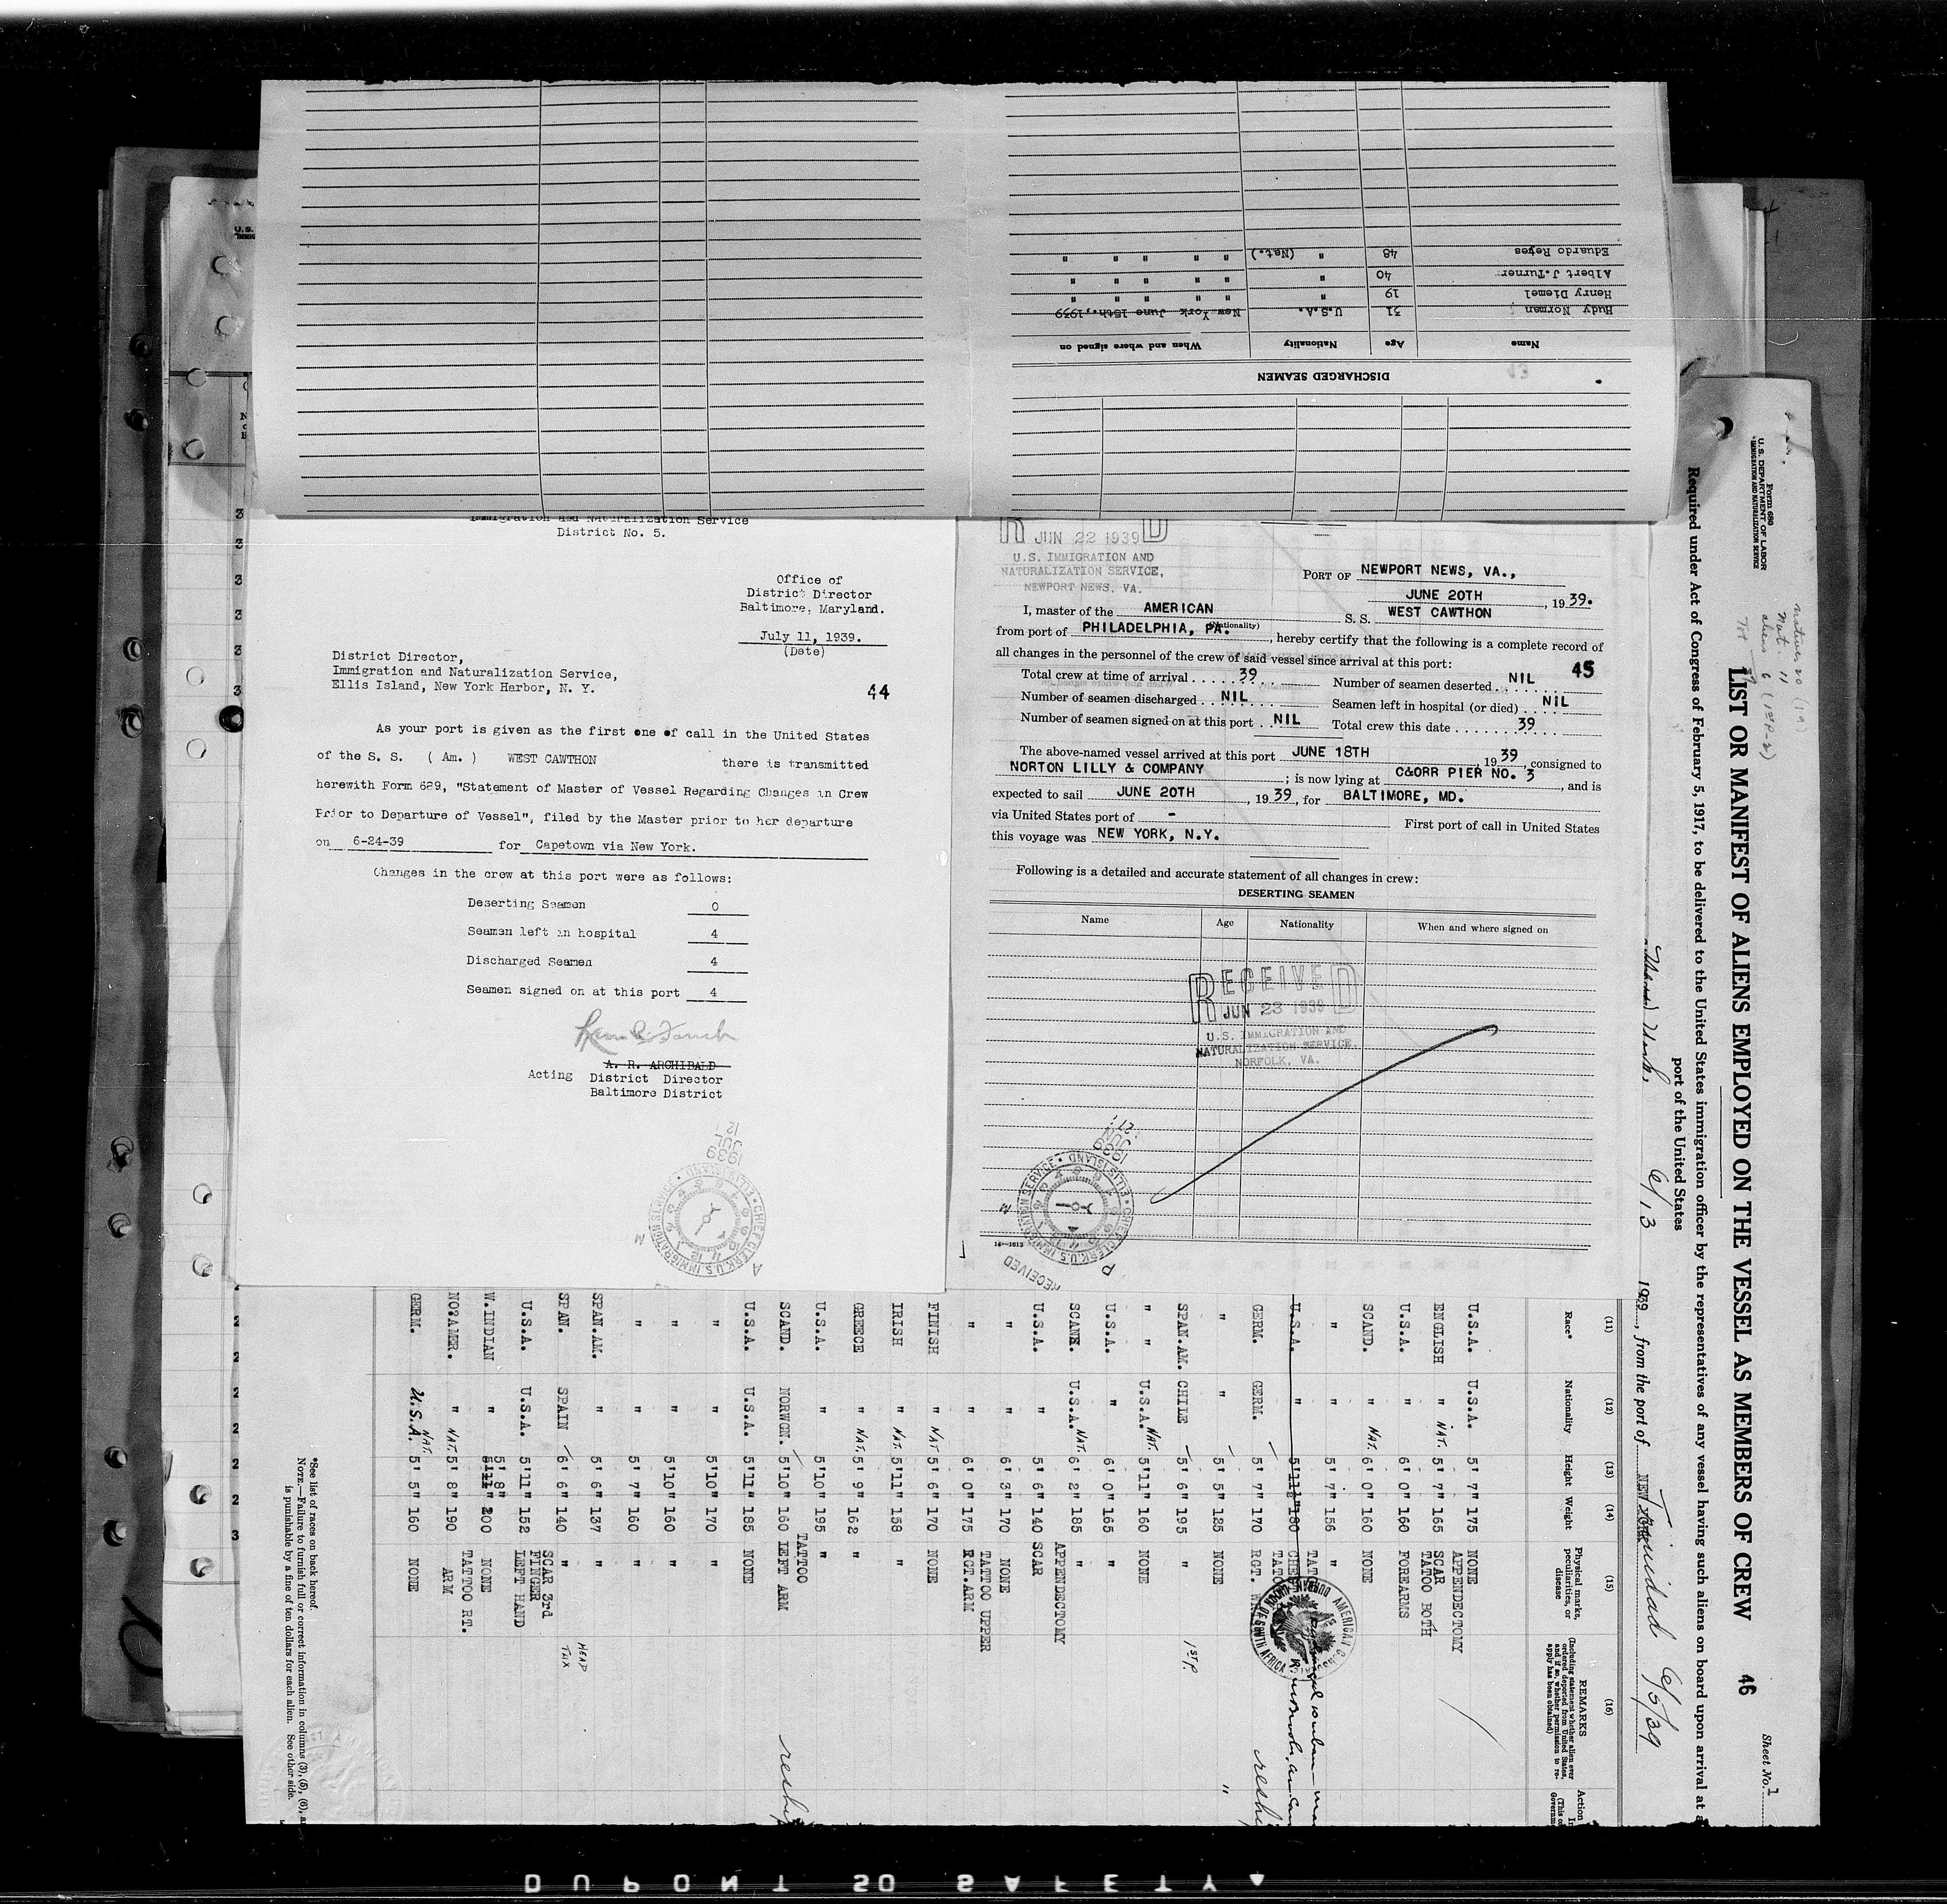 Name Age Nationality When and where signed on
DISCHARGED SEAMEN
Rudy Norman 31 U.S.A. New York June 15th.,1939
Henry Diemel 19 " " " " " "
Albert J.Turner 40 " " " " " "
Eduardo Reyes 48 " (Nat.) " " " " "
Immigration and Naturalization Service
District No. 5.
Office of
District Director
Baltimore, Maryland.
July 11, 1939.
(Date)
District Director,
Immigration and Naturalization Service,
Ellis Island, New York Harbor, N. Y.
44
As your port is given as the first one of call in the United States
of the S. S. ( Am. ) WEST CAWTHON there is transmitted
herewith Form 689, "Statement of Master of Vessel Regarding Changes in Crew
Prior to Departure of Vessel", filed by the Master prior to her departure
on 6-24-39 for Capetown via New York.
Changes in the crew at this port were as follows:
Deserting Seamen 0
Seamen left in hospital 4
Discharged Seamen 4
Seamen signed on at this port 4
A. R. ARCHIBALD
Acting District Director
Baltimore District
JUN 22 1939
U.S. IMMIGRATION AND
NATURALIZATION SERVICE,
NEWPORT NEWS, VA.
PORT OF NEWPORT NEWS, VA.,
JUNE 20TH, 1939.
I, master of the AMERICAN S. S. WEST CAWTHON
(Nationality)
from port of PHILADELPHIA, PA., hereby certify that the following is a complete record of
all changes in the personnel of the crew of said vessel since arrival at this port:
45
Total crew at time of arrival 39 Number of seamen deserted NIL
Number of seamen discharged NIL Seamen left in hospital (or died) NIL
Number of seamen signed on at this port NIL Total crew this date 39
The above-named vessel arrived at this port JUNE 18TH, 1939, consigned to
NORTON LILLY & COMPANY; is now lying at C&ORR PIER NO. 3, and is
expected to sail JUNE 20TH, 1939, for BALTIMORE, MD.
via United States port of - First port of call in United States
this voyage was NEW YORK, N.Y.
Following is a detailed and accurate statement of all changes in crew:
DESERTING SEAMEN
Name Age Nationality When and where signed on
RECEIVED
JUN 23 1939
U.S. IMMIGRATION AND
NATURALIZATION SERVICE
NORFOLK, VA.
16—1613
Form 680
U.S. DEPARTMENT OF LABOR
IMMIGRATION AND NATURALIZATION SERVICE
LIST OR MANIFEST OF ALIENS EMPLOYED ON THE VESSEL AS MEMBERS OF CREW
46
Sheet No. 1
Required under Act of Congress of February 5, 1917, to be delivered to the United States immigration officer by the representatives of any vessel having such aliens on board upon arrival at a
port of the United States
6/13 1939, from the port of Trinidad 6/5/39
(11) (12) (13) (14) (15) (16)
Race* Nationality Height Weight Physical marks, peculiarities, or disease REMARKS
(Including statement whether alien ever ordered deported from United States, and if so, whether permission to reapply has been obtained)
U.S.A. U.S.A. 5' 7" 175 NONE
ENGLISH " NAT. 5' 7" 165 APPENDECTOMY SCAR
U.S.A. " 6' 0" 160 TATOO BOTH FOREARMS
SCAND. " NAT. 6' 0" 160 NONE
" " 5' 7" 156 "
U.S.A. "
GERM. GERM. 5' 7" 170 RGT.
" " 5' 5" 125 NONE
SPAN.AM. CHILE 5' 6" 195 " 1ST P.
" U.S.A. NAT. 5'11" 160 NONE
U.S.A. " 6' 0" 165
SCANE. U.S.A. NAT. 6' 2" 185 "
U.S.A. " 5' 6" 140 APPENDECTOMY SCAR
" " 6' 3" 170 NONE
" " 6' 0" 175 TATTOO UPPER RGT.ARM
FINISH " NAT 5' 6" 170 NONE
IRISH " NAT. 5'11" 158 "
GREECE " NAT. 5' 9" 162 "
U.S.A. " 5'10" 195 "
SCAND. NORWGN. 5'10" 160 TATTOO LEFT ARM
U.S.A. U.S.A. 5'11" 185 NONE
" " 5'10" 170 "
" " 5'10" 160 "
" " 5' 7" 160 "
SPAN.AM. " 5' 6" 137 "
SPAN. SPAIN 6' 6" 140 " HEAD TAX
U.S.A. U.S.A. 5'11" 152 SCAR 3rd FINGER LEFT HAND
W.INDIAN " 5' 8" 200 NONE
NO?AMER. " NAT. 5' 8" 190 TATTOO RT. ARM
GERM. U.S.A. NAT. 5' 5" 160 NONE
*See list of races on back hereof.
NOTE.—Failure to furnish full or correct information in columns (3), (5), (6),
is punishable by a fine of ten dollars for each alien. See other side.
DUPONT SAFETY